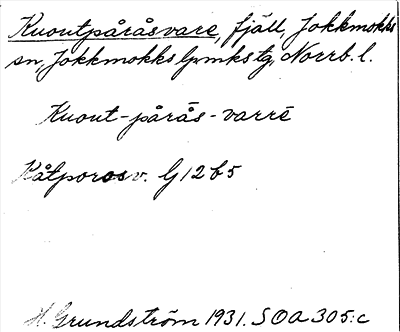 Kuoutpåråsvare, fjäll, Jokkmokks
sn, Jokkmokks lpmks tg, Norrb. l.
Kuout-pårås-varrē
Kåtporosv. G 12 b 5
H. Grundström 1931. SOA 305:c